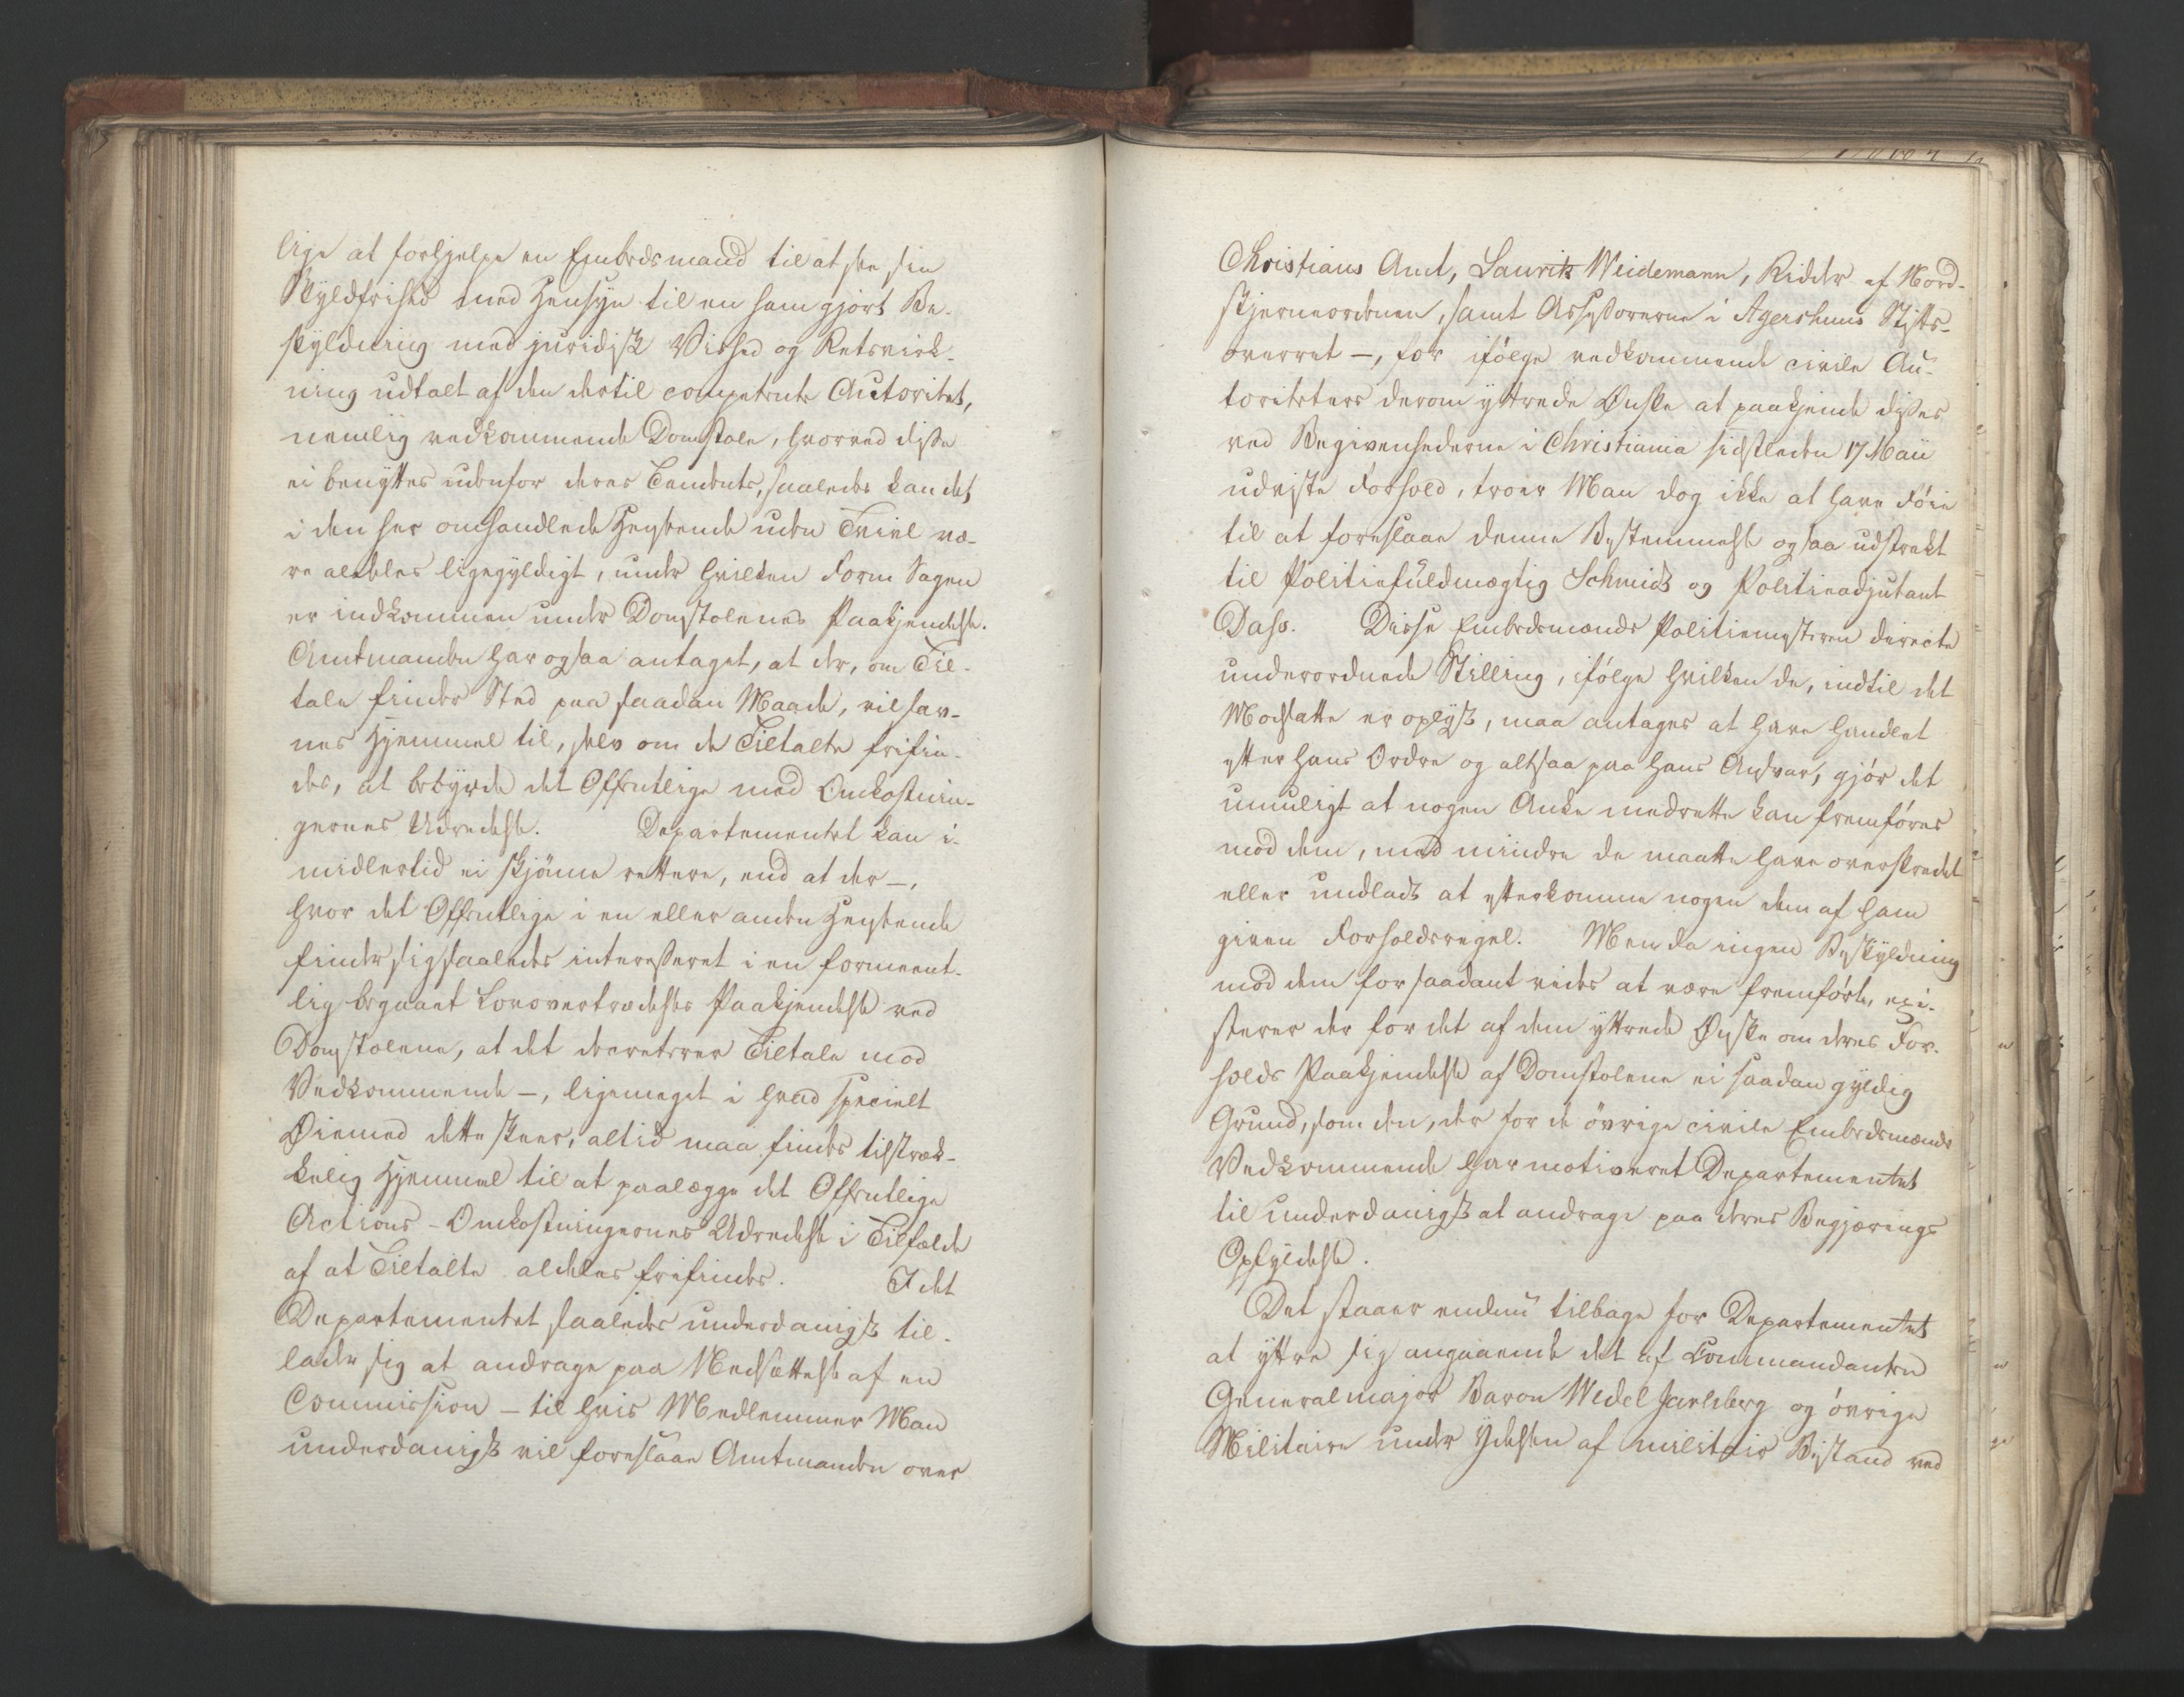 lige at forhjelpe en Embedsmand til at see sin
Skyldfrihed med Hensyn til en ham gjort Be-
skyldning med juridisk Vished og Retsvirk-
ning udtalt af den dertil competente Autoritet,
nemlig vedkommende Domstole, hvorved disse
ei benyttes udenfor deres Tendents, saaledes kan det
i den her omhandlede Henseende uden Tvivl væ-
re aldeles ligegyldigt, under hvilken Form Sagen
er indkommen under Domstolenes Paakjendelse.
Amtmanden har ogsaa antaget, at der, om Til-
tale finder Sted paa saadan Maade, vil sav-
nes Hjemmel til, selv om de Tiltalte frifin-
des, at bebyrde det Offentlige med Omkostnin-
gernes Udredelse. Departementet kan i-
midlertid ei skjønne rettere, end at der –,
hvor det Offentlige i en eller anden Henseende
finder sig saaledes interesseret i en formeent-
lig begaaet Lovovertrædelses Paakjendelse ved
Domstolene, at det decreterer Tiltale mod
Vedkommende –, ligemeget i hvad specielt
Øiemed dette skeer, altid maa findes tilstræk-
kelig Hjemmel til at paalægge det Offentlige
Actions-Omkostningernes Udredelse i Tilfælde
af at Tiltalte aldeles frifindes. Idet
Departementet saaledes underdanigst til-
lader sig at andrage paa Nedsættelse af en
Commission – til hvis Medlemmer Man
underdanigst vil foreslaae Amtmanden over
Christians Amt, Lauritz Weidemann, Ridder af Nord-
stjerneordenen, samt Assessorerne i Agershuus Stifts-
overret –, for ifølge vedkommende civile Au-
toriteters derom yttrede Ønske at paakjende disses
ved Begivenhederne i Christiania sidstleden 17 Maii
udviste Forhold, troer Man dog ikke at have Føie
til at foreslaae denne Bestemmelse ogsaa udstrakt
til Politiefuldmægtig Schmidt og Politieadjutant
Dass. Disse Embedsmænds Politiemesteren directe
underordnede Stilling, ifølge hvilken de, indtil det
Modsatte er oplyst, maa antages at have handlet
efter hans Ordre og altsaa paa hans Ansvar, gjør det
umuligt at nogen Anke medrette kan fremføres
mod dem, med mindre de maatte have overskredet
eller undladt at efterkomme nogen dem af ham
given Forholdsregel. Men da ingen Beskyldning
mod dem for saadant vides at være fremført, exi-
sterer der for det af dem yttrede Ønske om deres For-
holds Paakjendelse af Domstolene ei saadan gyldig
Grund, som den, der for de øvrige civile Embedsmænds
Vedkommende har motiveret Departementet
til underdanigst at andrage paa deres Begjærings
Opfyldelse.
Det staaer endnu tilbage for Departementet
at yttre sig angaaende det af Commandanten
Generalmajor Baron Wedel Jarlsberg og øvrige
Militaire under Ydelsen af militair Bistand ved